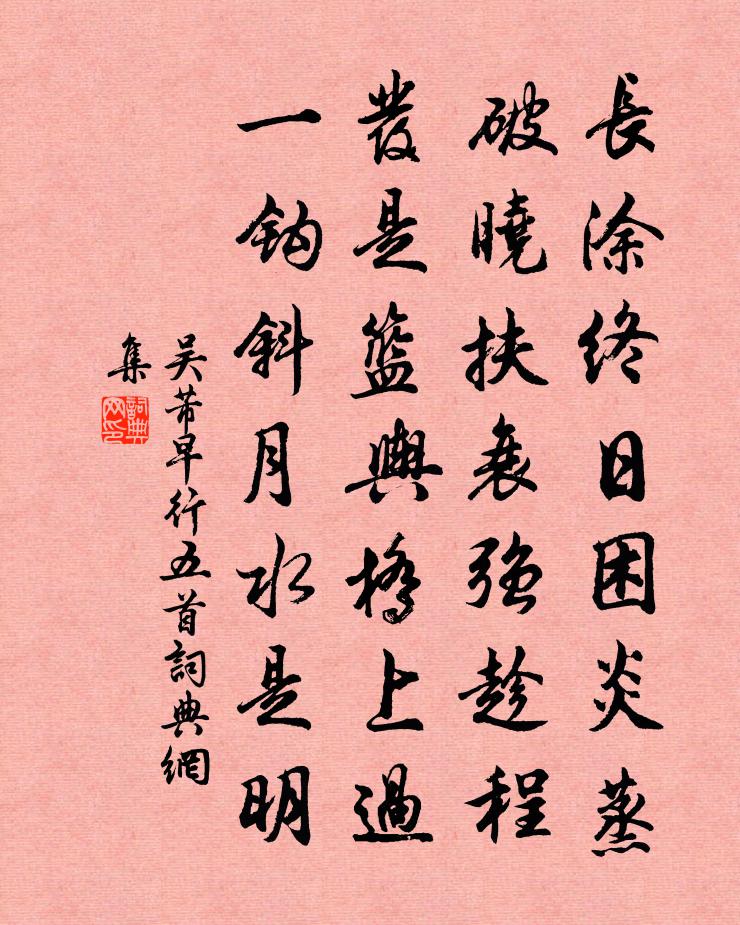 長涂終日困炎蒸
破曉扶衰強趁程
發是籃輿橋上過
一鈎斜月水是明
吴芾早行五首詞典網
集
詞典
网印